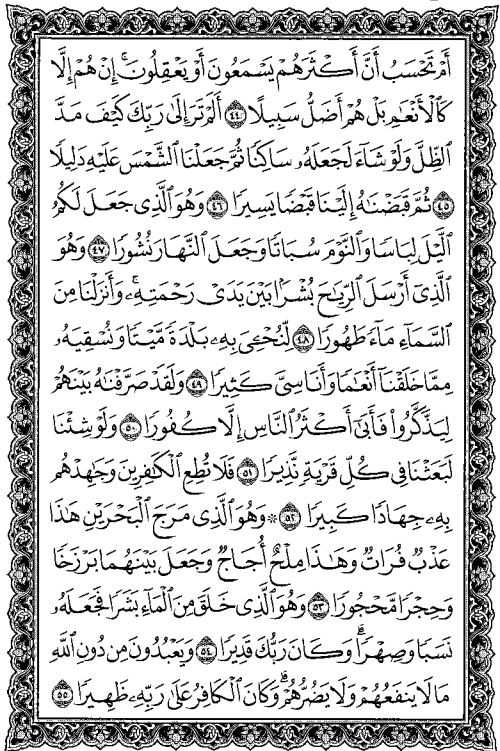 أَمْ تَحْسَبُ أَنَّ أَكْثَرَهُمْ يَسْمَعُونَ أَوْ يَعْقِلُونَ ۚ إِنْ هُمْ إِلَّا
كَالْأَنْعَامِ بَلْ هُمْ أَضَلُّ سَبِيلًا ٤٤ أَلَمْ تَرَ إِلَىٰ رَبِّكَ كَيْفَ مَدَّ
الظِّلَّ وَلَوْ شَاءَ لَجَعَلَهُ سَاكِنًا ثُمَّ جَعَلْنَا الشَّمْسَ عَلَيْهِ دَلِيلًا
٤٥ ثُمَّ قَبَضْنَاهُ إِلَيْنَا قَبْضًا يَسِيرًا ٤٦ وَهُوَ الَّذِي جَعَلَ لَكُمُ
اللَّيْلَ لِبَاسًا وَالنَّوْمَ سُبَاتًا وَجَعَلَ النَّهَارَ نُشُورًا ٤٧ وَهُوَ
الَّذِي أَرْسَلَ الرِّيَاحَ بُشْرًا بَيْنَ يَدَيْ رَحْمَتِهِ ۚ وَأَنْزَلْنَا مِنَ
السَّمَاءِ مَاءً طَهُورًا ٤٨ لِنُحْيِيَ بِهِ بَلْدَةً مَيْتًا وَنُسْقِيَهُ
مِمَّا خَلَقْنَا أَنْعَامًا وَأَنَاسِيَّ كَثِيرًا ٤٩ وَلَقَدْ صَرَّفْنَاهُ بَيْنَهُمْ
لِيَذَّكَّرُوا فَأَبَىٰ أَكْثَرُ النَّاسِ إِلَّا كُفُورًا ٥٠ وَلَوْ شِئْنَا
لَبَعَثْنَا فِي كُلِّ قَرْيَةٍ نَذِيرًا ٥١ فَلَا تُطِعِ الْكَافِرِينَ وَجَاهِدْهُمْ
بِهِ جِهَادًا كَبِيرًا ٥٢ ۞ وَهُوَ الَّذِي مَرَجَ الْبَحْرَيْنِ هَٰذَا
عَذْبٌ فُرَاتٌ وَهَٰذَا مِلْحٌ أُجَاجٌ وَجَعَلَ بَيْنَهُمَا بَرْزَخًا
وَحِجْرًا مَحْجُورًا ٥٣ وَهُوَ الَّذِي خَلَقَ مِنَ الْمَاءِ بَشَرًا فَجَعَلَهُ
نَسَبًا وَصِهْرًا ۗ وَكَانَ رَبُّكَ قَدِيرًا ٥٤ وَيَعْبُدُونَ مِنْ دُونِ اللَّهِ
مَا لَا يَنْفَعُهُمْ وَلَا يَضُرُّهُمْ ۗ وَكَانَ الْكَافِرُ عَلَىٰ رَبِّهِ ظَهِيرًا ٥٥